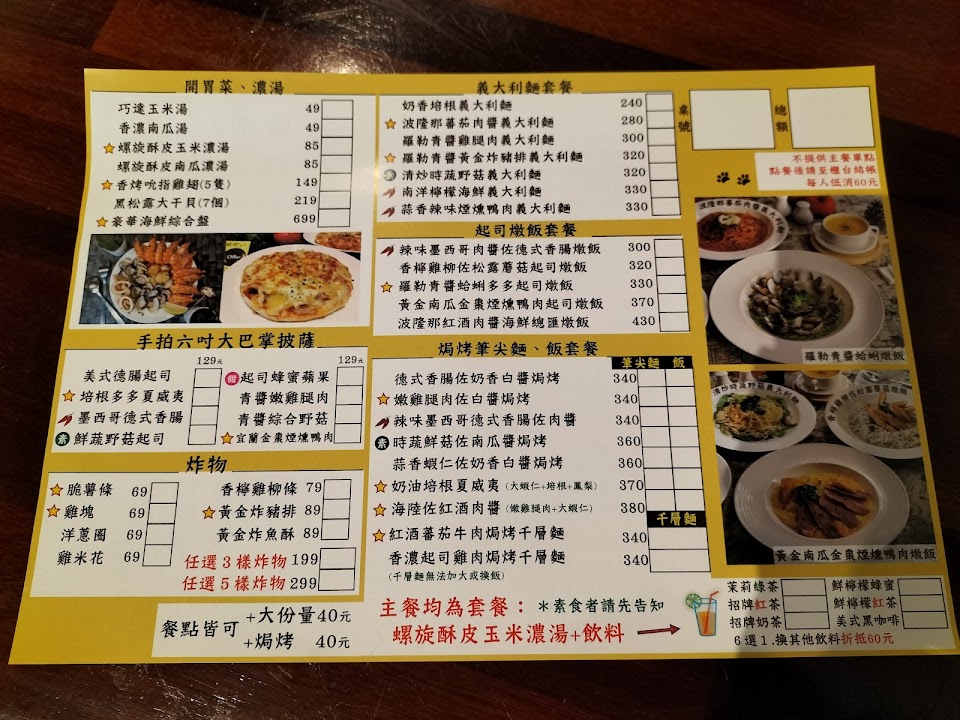 開胃菜、濃湯
巧達玉米湯 49
香濃南瓜湯 49
螺旋酥皮玉米濃湯 85
螺旋酥皮南瓜濃湯 85
香烤吮指雞翅(5隻) 149
黑松露大干貝(7個) 219
豪華海鮮綜合盤 699
手拍六吋大巴掌披薩
129元 129元
美式德腸起司
培根多多夏威夷
墨西哥德式香腸
素 鮮蔬野菇起司
甜 起司蜂蜜蘋果
青醬嫩雞腿肉
青醬綜合野菇
宜蘭金棗煙燻鴨肉
炸物
脆薯條 69
雞塊 69
洋蔥圈 69
雞米花 69
香檸雞柳條 79
黃金炸豬排 89
黃金炸魚酥 89
任選3樣炸物 199
任選5樣炸物 299
餐點皆可 +大份量40元
+焗烤 40元
義大利麵套餐
奶香培根義大利麵 240
波隆那蕃茄肉醬義大利麵 280
羅勒青醬雞腿肉義大利麵 300
羅勒青醬黃金炸豬排義大利麵 320
素 清炒時蔬野菇義大利麵 320
南洋檸檬海鮮義大利麵 330
蒜香辣味煙燻鴨肉義大利麵 330
起司燉飯套餐
辣味墨西哥肉醬佐德式香腸燉飯 300
香檸雞柳佐松露蘑菇起司燉飯 320
羅勒青醬蛤蜊多多起司燉飯 330
黃金南瓜金棗煙燻鴨肉起司燉飯 370
波隆那紅酒肉醬海鮮總匯燉飯 430
焗烤筆尖麵、飯套餐
筆尖麵 飯
德式香腸佐奶香白醬焗烤 340
嫩雞腿肉佐白醬焗烤 340
辣味墨西哥德式香腸佐肉醬 340
素 時蔬鮮菇佐南瓜醬焗烤 360
蒜香蝦仁佐奶香白醬焗烤 360
奶油培根夏威夷(大蝦仁+培根+鳳梨) 370
海陸佐紅酒肉醬(嫩雞腿肉+大蝦仁) 380
千層麵
紅酒蕃茄牛肉焗烤千層麵 340
香濃起司雞肉焗烤千層麵 340
(千層麵無法加大或換飯)
主餐均為套餐：＊素食者請先告知
螺旋酥皮玉米濃湯+飲料
桌號
總額
不提供主餐單點
點餐後請至櫃台結帳
每人低消60元
波隆那蕃茄肉醬義大利麵
羅勒青醬蛤蜊燉飯
清炒時蔬野菇義大利麵
香檸雞柳佐松露蘑菇燉飯
黃金南瓜金棗煙燻鴨肉燉飯
茉莉綠茶 鮮檸檬蜂蜜
招牌紅茶 鮮檸檬紅茶
招牌奶茶 美式黑咖啡
6選1.換其他飲料折抵60元